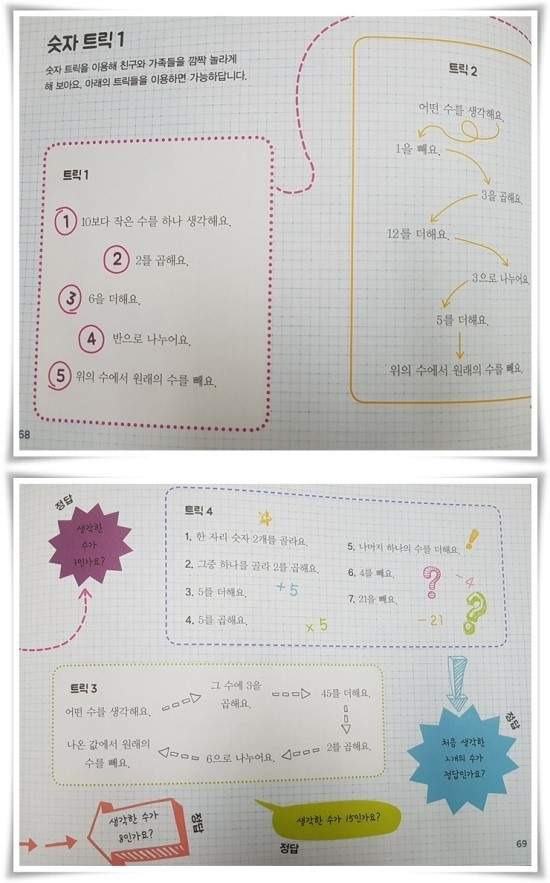 숫자 트릭 1
숫자 트릭을 이용해 친구와 가족들을 깜짝 놀라게
해 보아요. 아래의 트릭들을 이용하면 가능하답니다.
트릭 1
1 10보다 작은 수를 하나 생각해요.
2 2를 곱해요.
3 6을 더해요.
4 반으로 나누어요.
5 위의 수에서 원래의 수를 빼요.
68
트릭 2
어떤 수를 생각해요.
1을 빼요.
3을 곱해요.
12를 더해요.
3으로 나누어요.
5를 더해요.
위의 수에서 원래의 수를 빼요.
정답
생각한
수가
3인가요?
트릭 4
1. 한 자리 숫자 2개를 골라요.
2. 그중 하나를 골라 2를 곱해요.
3. 5를 더해요.
+5
4. 5를 곱해요.
x5
5. 나머지 하나의 수를 더해요.
!
6. 4를 빼요.
?
-4
7. 21을 빼요.
-21
?
트릭 3
어떤 수를 생각해요.
그 수에 3을
곱해요.
45를 더해요.
2를 곱해요.
6으로 나누어요.
나온 값에서 원래의
수를 빼요.
정답
처음 생각한
2개의 수가
정답인가요?
생각한 수가
8인가요?
정답
생각한 수가 15인가요?
정답
69